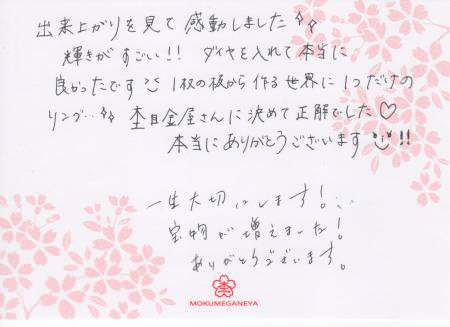 出来上がりを見て感動しました✨
輝きがすごい!! ダイヤを入れて本当に
良かったです 1枚の板から作る世界に1つだけの
リング…✨ 杢目金屋さんに決めて正解でした♡
本当にありがとうございます !!
一生大切にします!
宝物が増えました!
ありがとうございます。
MOKUMEGANEYA